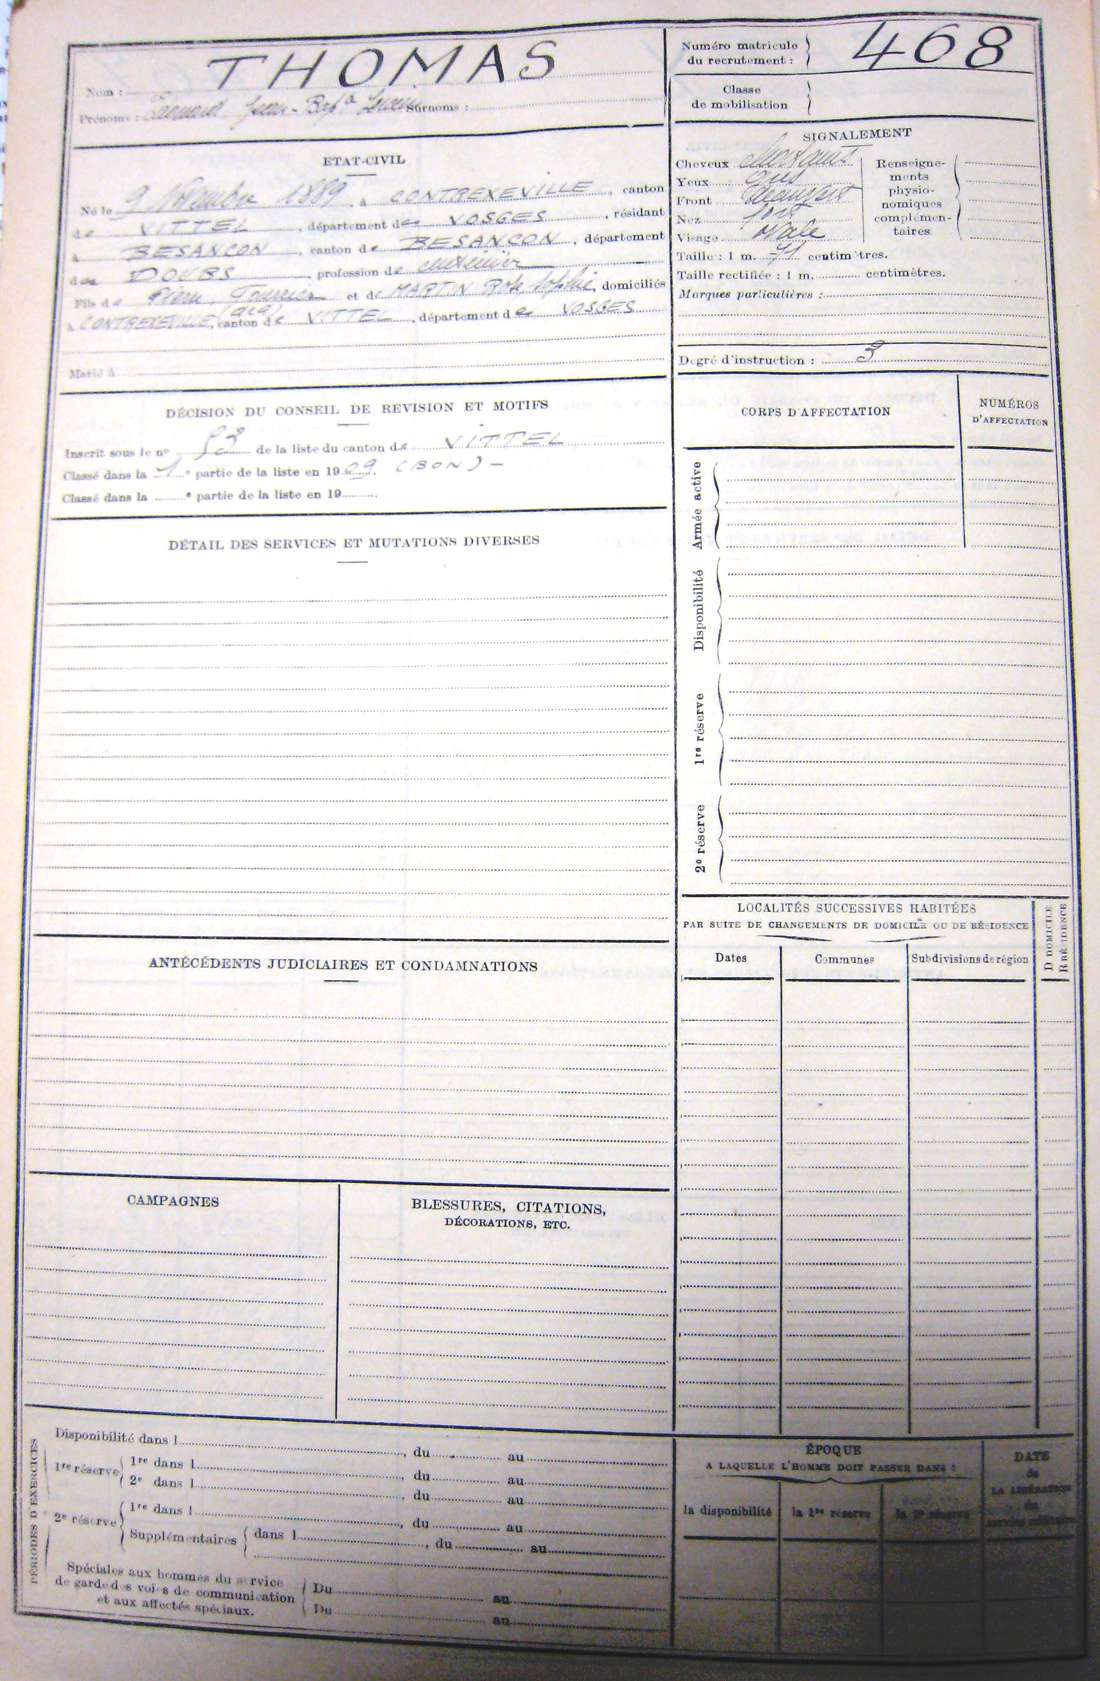 Nom : THOMAS
Prénoms : Jean-Bapte Surnoms :
Numéro matricule du recrutement : 468
Classe de mobilisation
ETAT-CIVIL
Né le 9 Novembre 1889, à CONTREXEVILLE, canton
de VITTEL, département des VOSGES, résidant
à BESANÇON, canton de BESANÇON, département
du DOUBS, profession de
Fils de et de MARTIN Rose Sophie, domiciliés
à CONTREXEVILLE, canton de VITTEL, département des VOSGES
Marié à
SIGNALEMENT
Cheveux
Yeux gris
Front
Nez fort
Visage ovale
Renseignements physionomiques complémentaires
Taille : 1 m. 71 centimètres.
Taille rectifiée : 1 m. centimètres.
Marques particulières :
Degré d'instruction : 3
DÉCISION DU CONSEIL DE REVISION ET MOTIFS
Inscrit sous le n° 53 de la liste du canton de VITTEL
Classé dans la 1e partie de la liste en 1909 (BON) -
Classé dans la e partie de la liste en 19
DÉTAIL DES SERVICES ET MUTATIONS DIVERSES
CORPS D'AFFECTATION
NUMÉROS D'AFFECTATION
Armée active
Disponibilité
1re réserve
2e réserve
LOCALITÉS SUCCESSIVES HABITÉES
PAR SUITE DE CHANGEMENTS DE DOMICILE OU DE RÉSIDENCE
Dates
Communes
Subdivisions de région
D DOMICILE
R RÉSIDENCE
ANTÉCÉDENTS JUDICIAIRES ET CONDAMNATIONS
CAMPAGNES
BLESSURES, CITATIONS,
DÉCORATIONS, ETC.
PÉRIODES D'EXERCICES
Disponibilité dans l , du au
1re réserve 1re dans l , du au
2e dans l , du au
2e réserve 1re dans l , du au
Supplémentaires dans l , du au
Spéciales aux hommes du service
de garde des voies de communication
et aux affectés spéciaux.
Du au
Du au
ÉPOQUE
A LAQUELLE L'HOMME DOIT PASSER DANS :
la disponibilité
la 1re réserve
la 2e réserve
DATE
de
LA LIBÉRATION
du
service militaire